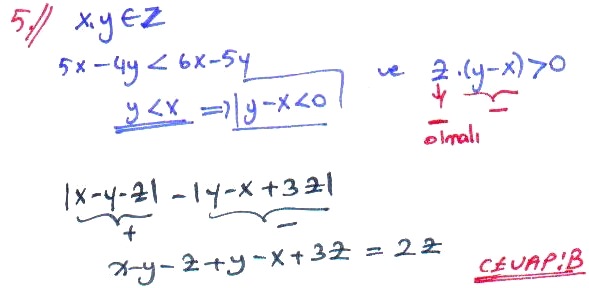 5.// x,y ∈ Z
5x-4y < 6x-5y ve z.(y-x)>0
y<x ⇒ y-x<0 - -
olmalı
|x-y-z| - |y-x+3z|
+ -
x-y-z+y-x+3z = 2z
CEVAP:B